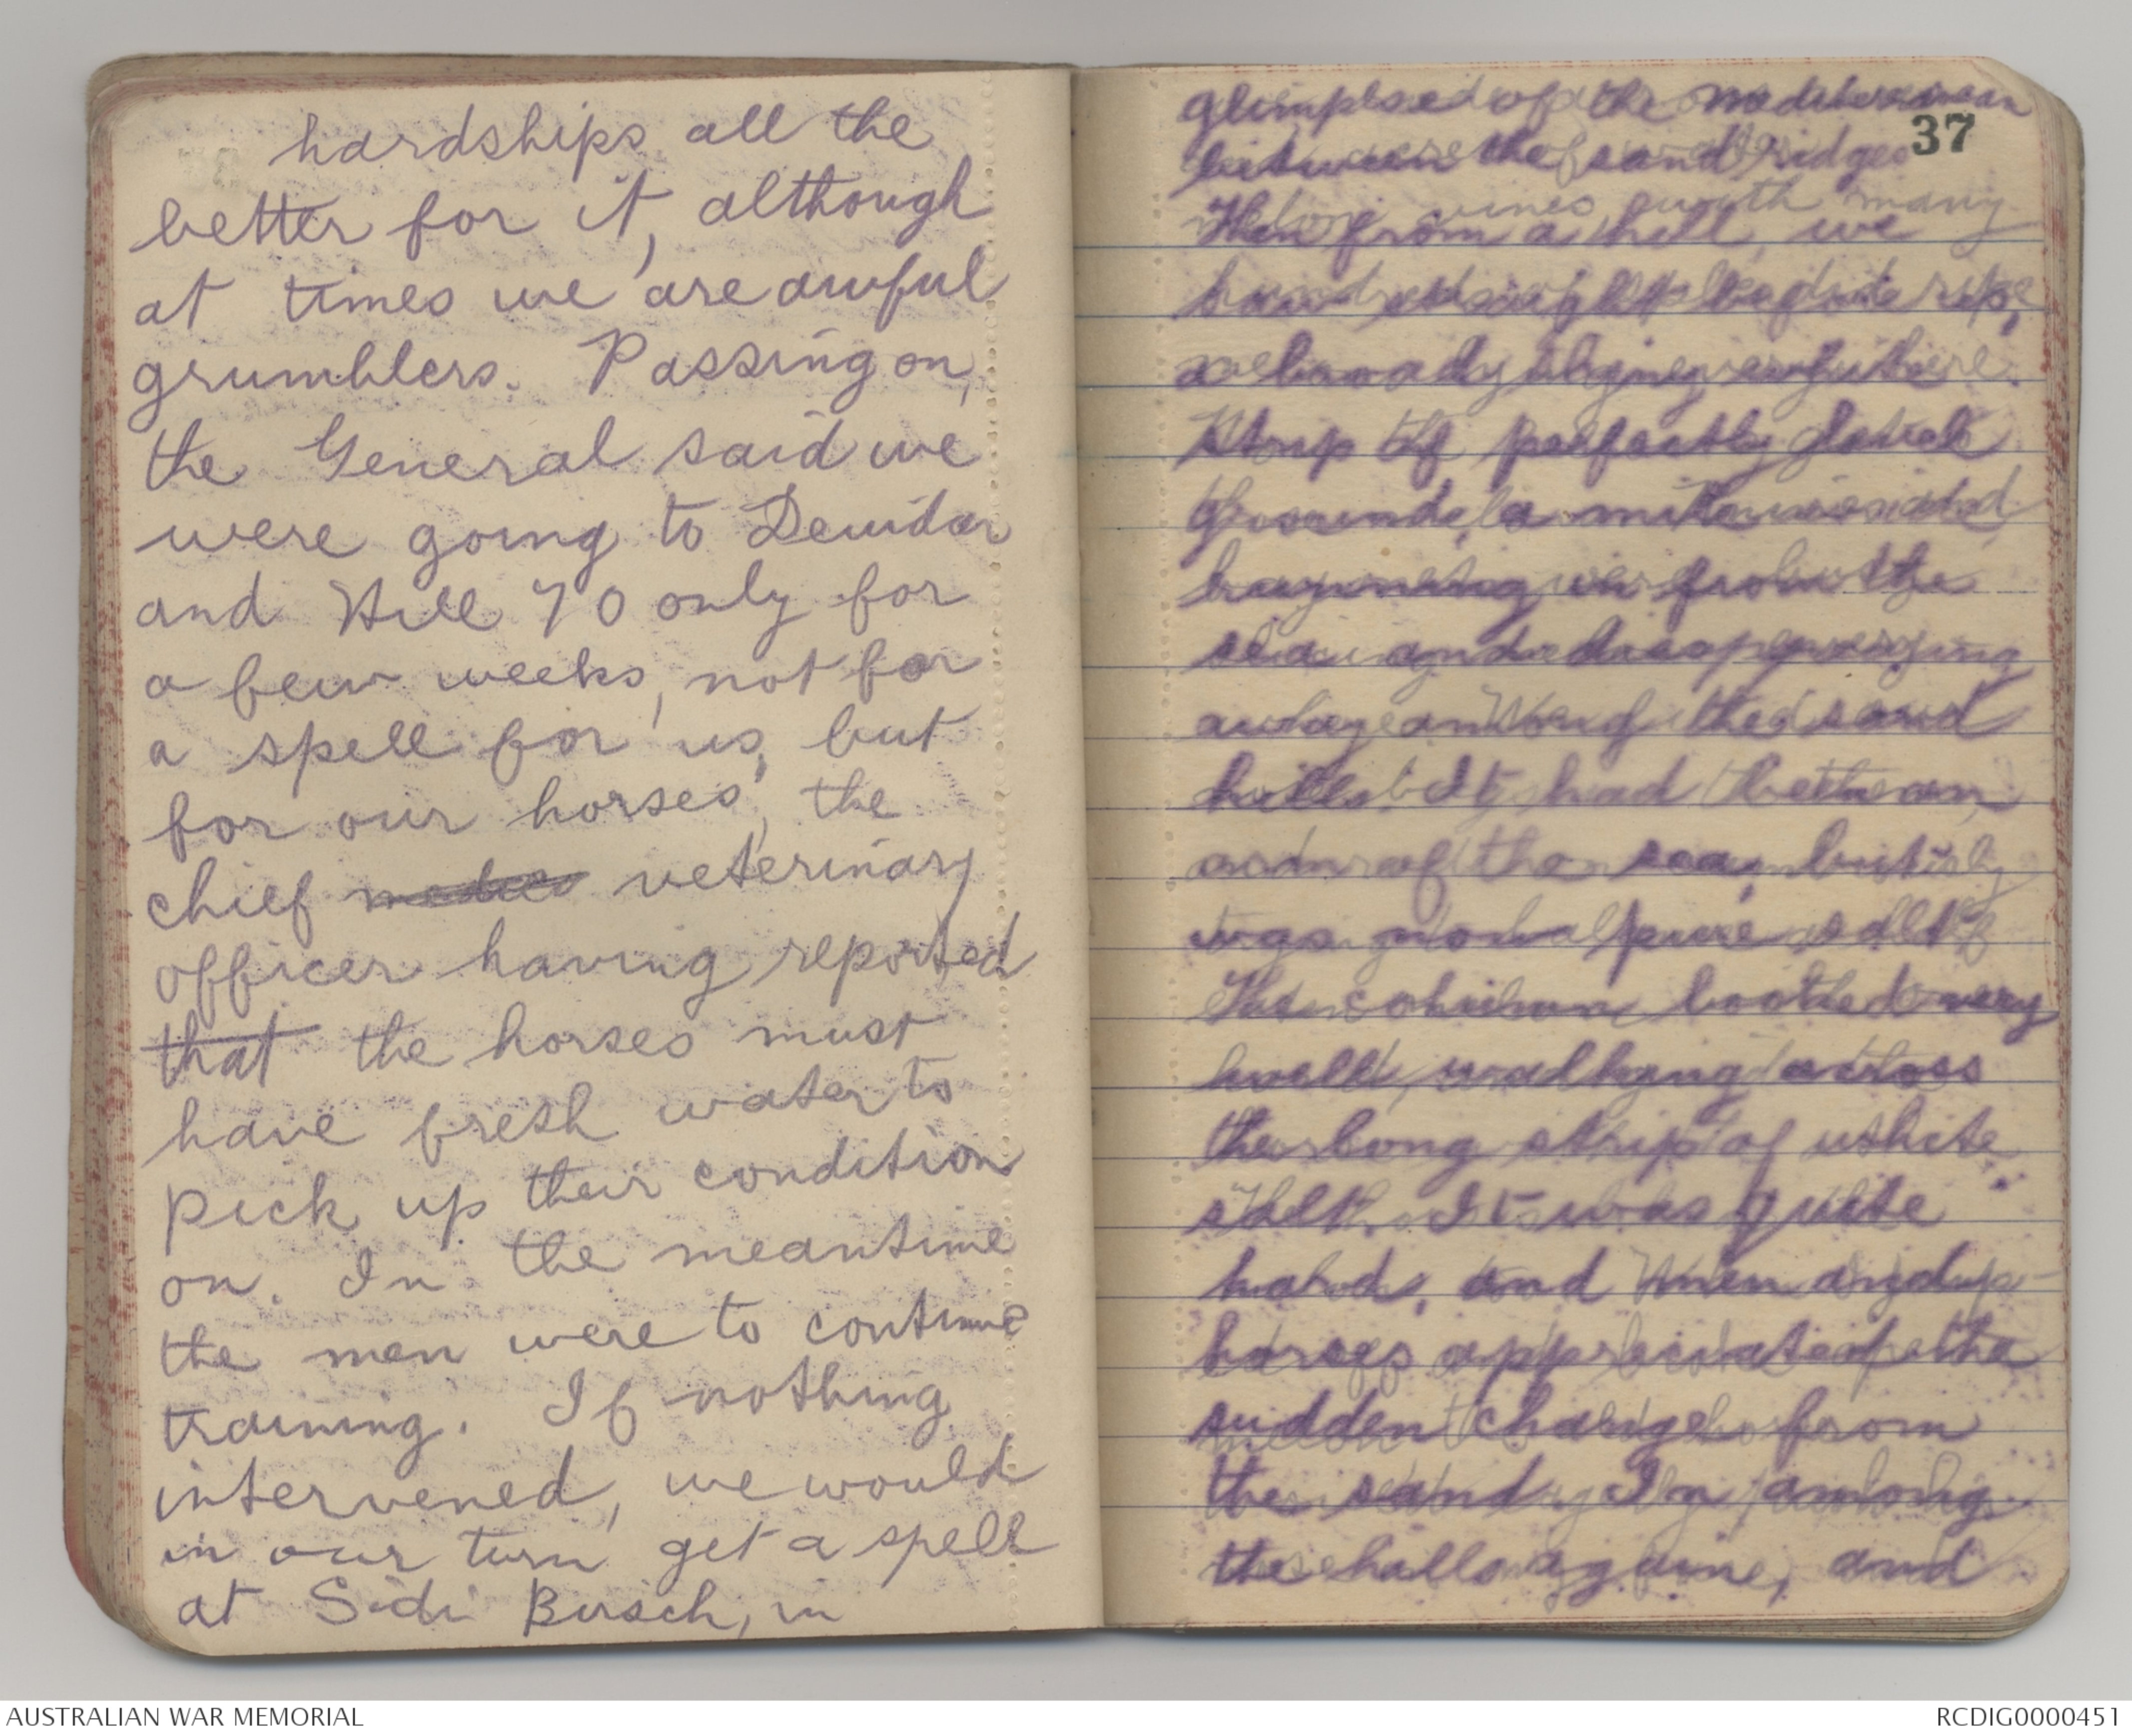 hardships all the
better for it, although
at times we are awful
grumblers. Passing on,
the General said we
were going to Dewidar
and Hill 70 only for
a few weeks, not for
a spell for us, but
for our horses, the
chief medico veterinary
officer having reported
that the horses must
have fresh water to
pick up their condition
on. In the meantime
the men were to continue
training. If nothing
intervened, we would
in our turn get a spell
at Sidi Birsch, in
37
glimpsed of the Mediterranean
between the sand ridges
Then from a hill, we
saw straight before us,
a broad shiny white
strip of perfectly flat
ground, a mile wide
in from the
sea and disappearing
away among the sand
hills. It had been an
arm of the sea, but
was now pure salt
The column looked very
well, walking across
the long strip of white
salt. It was quite
hard, and men and
horses appreciated the
sudden change from
the sand. In among
the hills again, and
AUSTRALIAN WAR MEMORIAL
RCDIG0000451